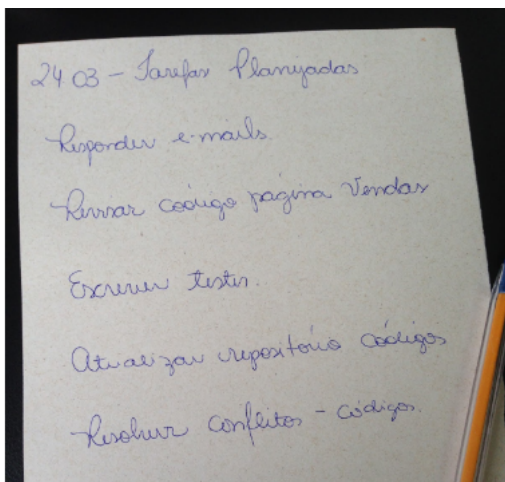 24 03 - Tarefas Planejadas
Responder e-mails.
Revisar código página Vendas
Escrever testes.
Atualizar repositório códigos
Resolver conflitos - códigos.